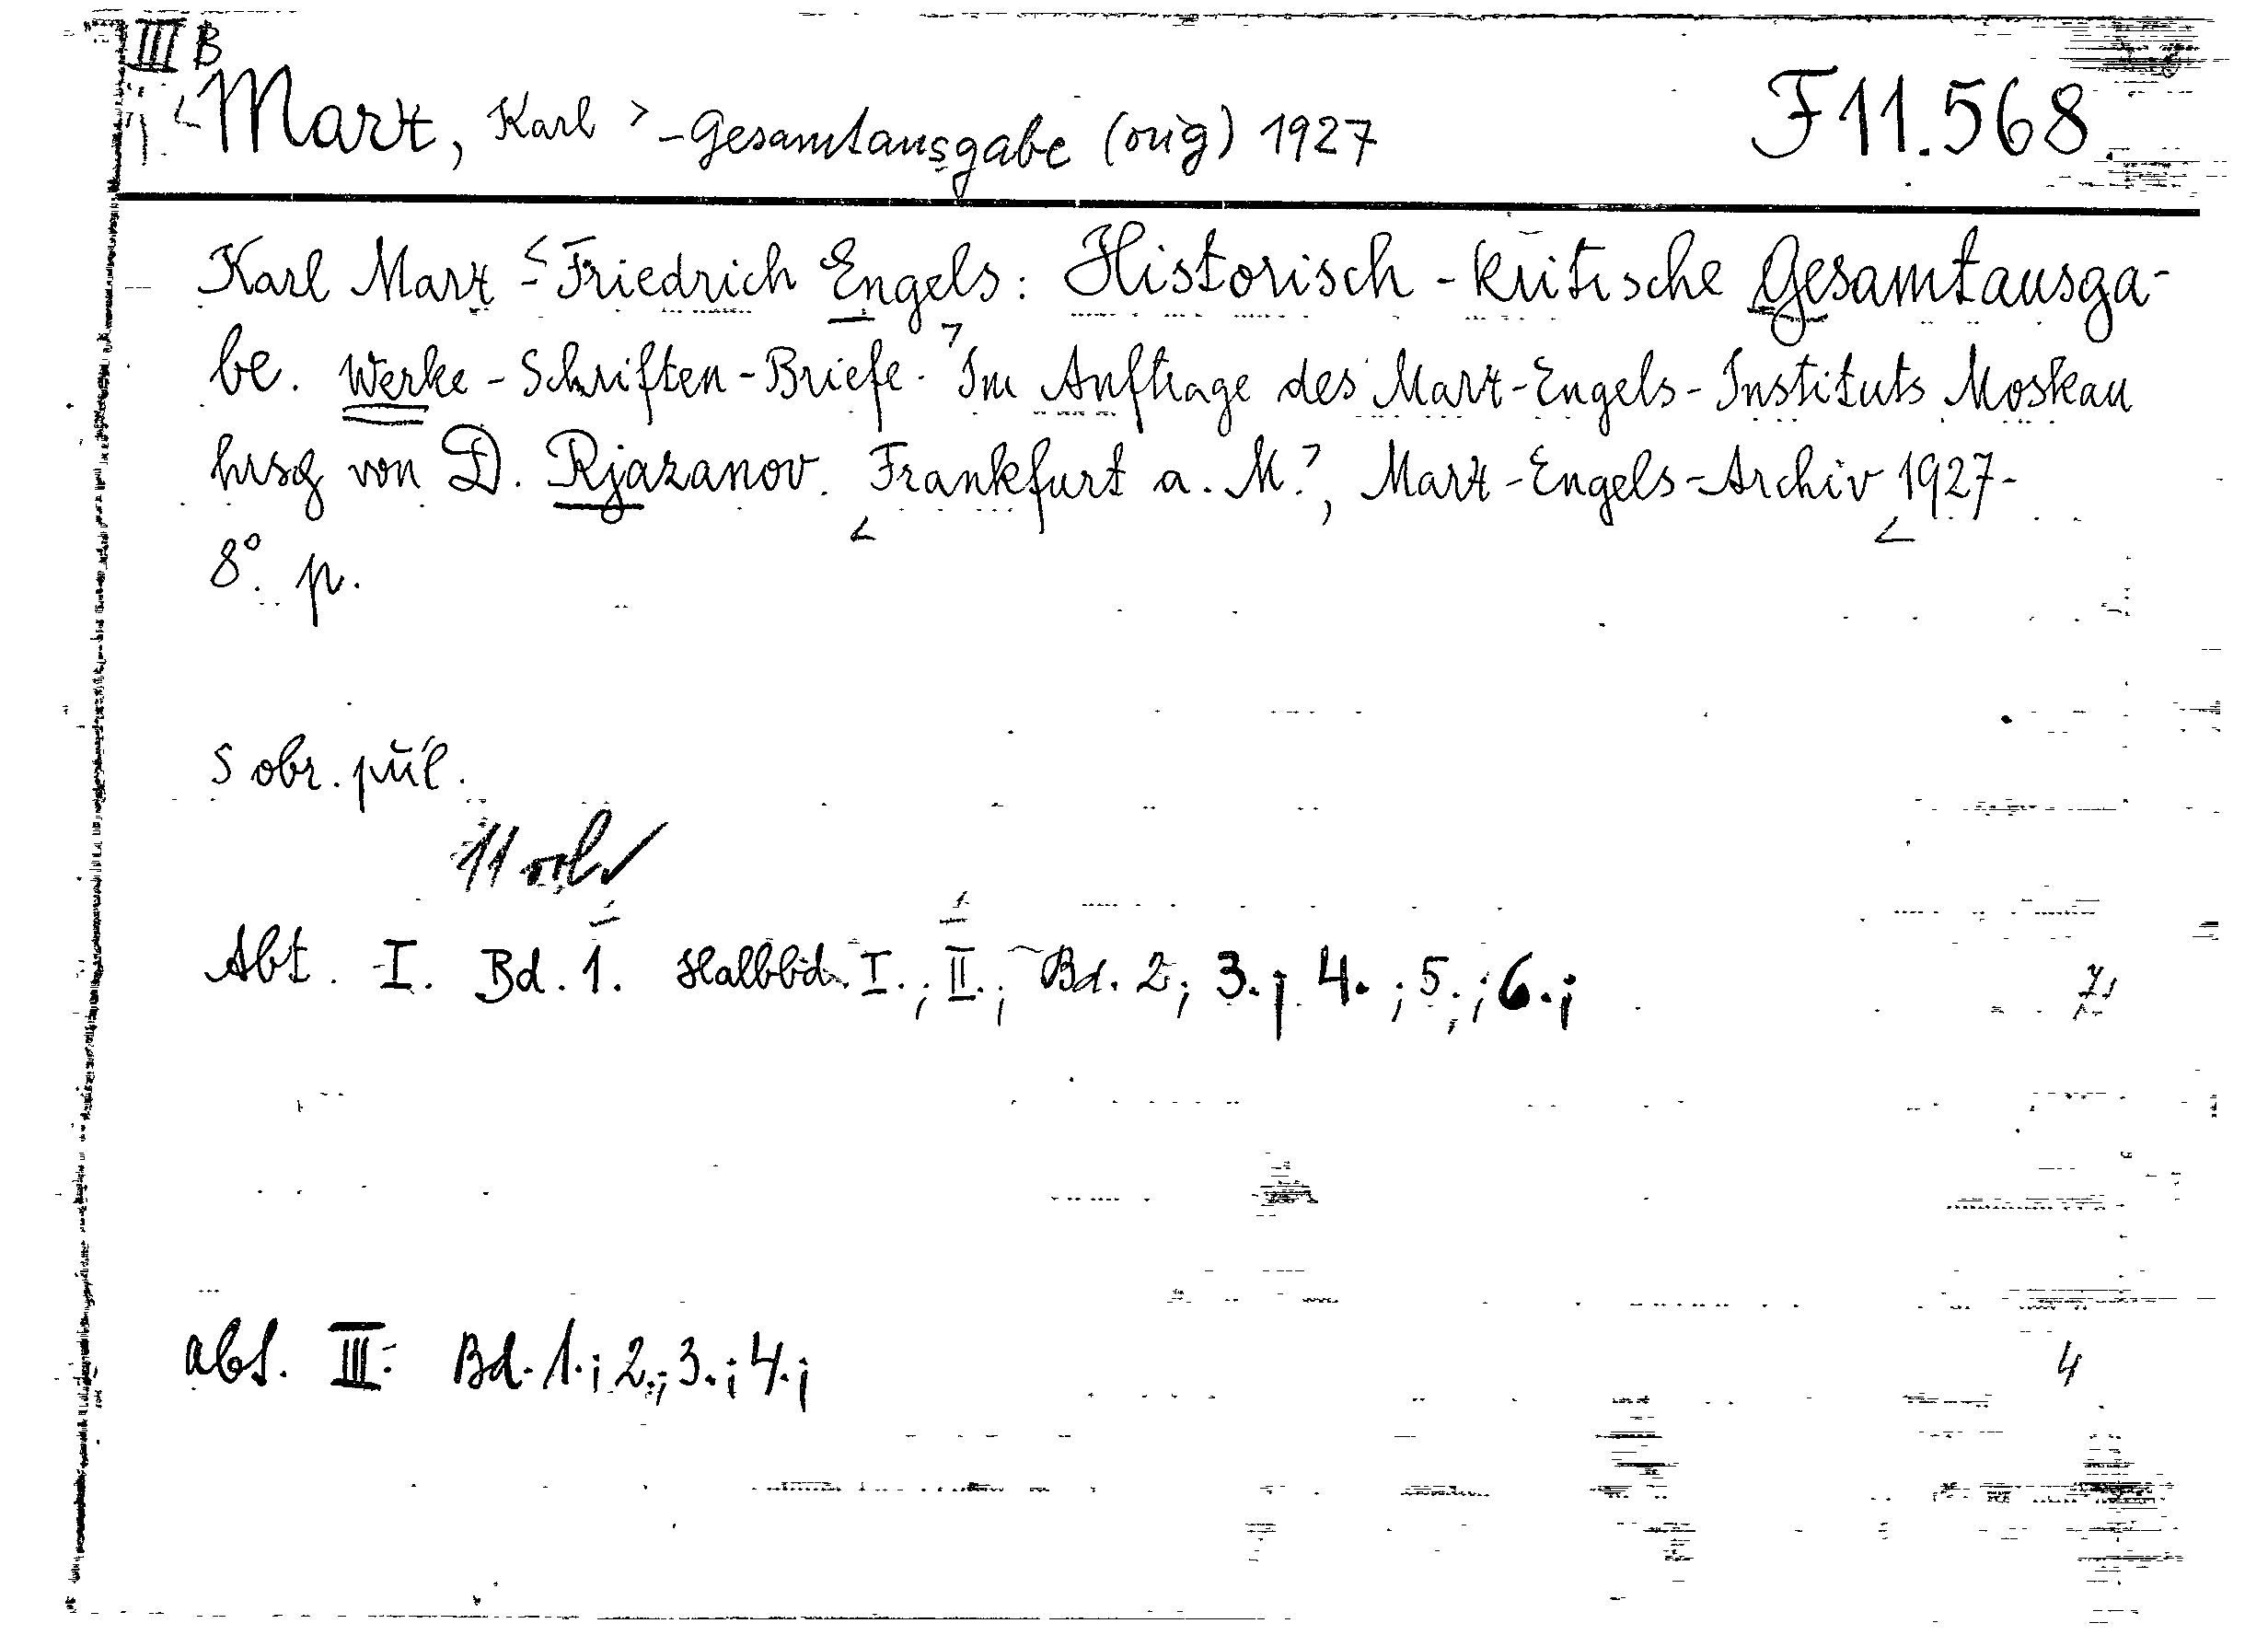 III B
<Marx, Karl> - Gesamtausgabe (orig) 1927 F11.568
Karl Marx - <Friedrich Engels: Historisch-kritische Gesamtausga-
be. Werke - Schriften - Briefe.> Im Auftrage des Marx-Engels-Instituts Moskau
hrsg von D. Rjazanov. <Frankfurt a. M.>, Marx-Engels-Archiv <1927-
8°. p.
S obr. příl.
11 vol
Abt. I. Bd. 1. Halbbd. I.; II.; Bd. 2; 3.; 4.; 5.; 6.; 7,
abt. III. Bd. 1.; 2.; 3.; 4.; 4